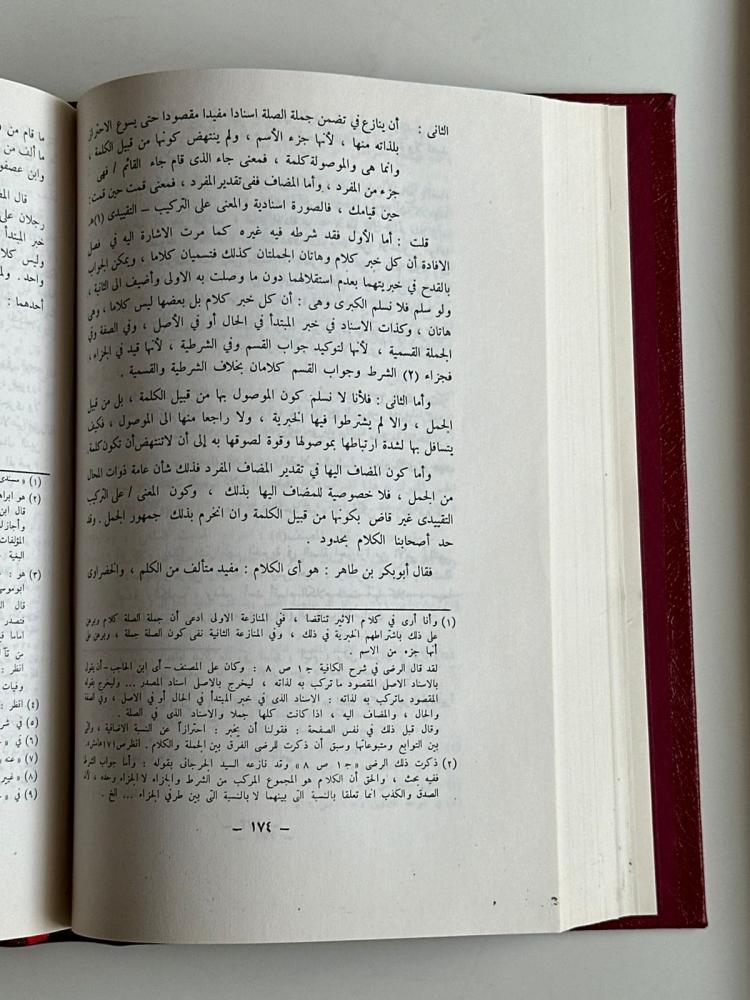 الثانى : أن ينازع في تضمن جملة الصلة اسنادا مفيدا مقصودا حتى يسوغ الاحتراز
بلذاته منها ، لأنها جزء الأسم ، ولم ينتهض كونها من قبيل الكلمة ،
وانما هى والموصولة كلمة ، فمعنى جاء الذى قام جاء القائم / فهى
جزء من المفرد ، وأما المضاف ففى تقدير المفرد ، فمعنى قمت حين قمت :
حين قيامك ، فالصورة اسنادية والمعنى على التركيب ــ التقييدى (١)
قلت : أما الأول فقد شرطه فيه غيره كما مرت الاشارة اليه في فصل
الافادة أن كل خبر كلام وهاتان الجملتان كذلك فتسميان كلاما ، ويمكن الجواب
بالقدح في خبريتهما بعدم استقلالهما دون ما وصلت به الاولى وأضيف الى الثانية ،
ولو سلم فلا نسلم الكبرى وهى : أن كل خبر كلام بل بعضها ليس كلاما ، وهى
هاتان ، وكذات الاسناد في خبر المبتدأ في الحال أو في الأصل ، وفي الصفة وفي
الجملة القسمية ، لأنها لتوكيد جواب القسم وفي الشرطية ، لأنها قيد في الجزاء ،
فجزاء (٢) الشرط وجواب القسم كلامان بخلاف الشرطية والقسمية .
وأما الثانى : فلأنا لا نسلم كون الموصول بها من قبيل الكلمة ، بل من قبيل
الجمل ، والا لم يشترطوا فيها الخبرية ، ولا راجعا منها الى الموصول ، فكيف
يتسافل بها لشدة ارتباطها بموصولها وقوة لصوقها به إلى أن لاتنتهض أن تكون كلمة.
وأما كون المضاف اليها في تقدير المضاف المفرد فذلك شأن عامة ذوات المحال
من الجمل ، فلا خصوصية للمضاف اليها بذلك ، وكون المعنى / على التركيب
التقييدى غير قاض بكونها من قبيل الكلمة وان انخرم بذلك جمهور الجمل . وقد
حد أصحابنا الكلام بحدود .
فقال أبوبكر بن طاهر : هو أى الكلام : مفيد متألف من الكلم ، والخضراوى
(١) وأنا أرى في كلام الاثير تناقضا ، ففي المنازعة الاولى ادعى أن جملة الصلة كلام وبرهن
على ذلك باشتراطهم الخبرية في ذلك ، وفي المنازعة الثانية نفى كون الصلة جملة ، وبرهن على
أنها جزء من الاسم .
لقد قال الرضى في شرح الكافية جـ ١ ص ٨ : وكان على المصنف ــ أى ابن الحاجب ــ أن يقول
بالاسناد الاصلى المقصود ما تركب به لذاته ، ليخرج بالاصلى اسناد المصدر ... وليخرج بقوله
المقصود ماتركب به لذاته : الاسناد الذى في خبر المبتدأ في الحال أو في الاصل ، وفي الصفة
والحال ، والمضاف اليه ، اذا كانت كلها جملا والاسناد الذى في الصلة .
وقال قبل ذلك في نفس الصفحة : فقولنا أن يخبر : احترازاً عن النسبة الاضافية ، والتى
بين التوابع ومتبوعاتها وسبق أن ذكرت للرضى الفرق بين الجملة والكلام. انظر ص ١٧١
(٢) ذكرت ذلك الرضى «جـ ١ ص ٨» وقد نازعه السيد الجرجانى بقوله : وأما جواب الشرط
ففيه بحث ، والحق أن الكلام هو المجموع المركب من الشرط والجزاء لا الجزاء وحده ، لأن
الصدق والكذب انما تعلقا بالنسبة التى بينهما لا بالنسبة التى بين طرفي الجزاء ... الخ .
ــ ١٧٤ ــ
ما قام من
ما ألف من
وابن عصفو
رجلان على
خبر المبتدأ
وليس كلا
أحدهما :
(١) «سندى
(٢) هو ابراه
قال ابن
المؤلفات
(٣) هو :
ابوموسى
فتصدر
اماما
من
انظر :
وفيات
(٤) انظر :
(٥) في شر
(٦) في «
(٧) «عنه»
(٨) «غير
(٩) في «